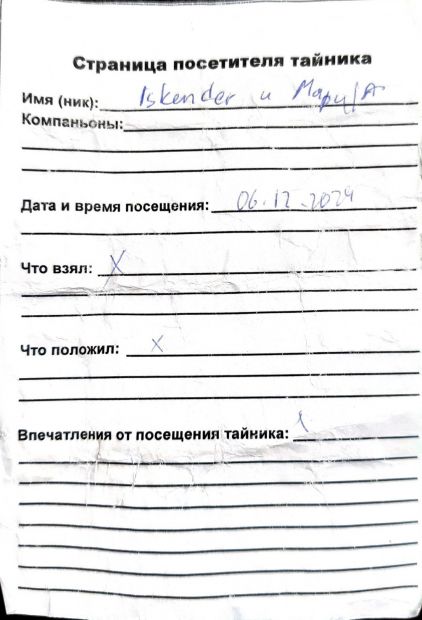 Страница посетителя тайника
Имя (ник): Iskender и
Компаньоны:
Дата и время посещения: 06.12.2024
Что взял: X
Что положил: X
Впечатления от посещения тайника: